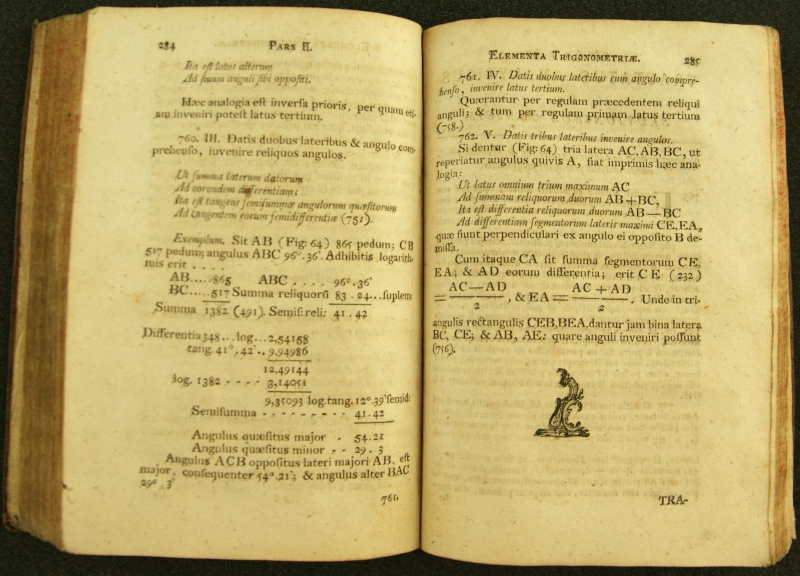 284 PARS II.
Ita est latus alterum
Ad sinum anguli sibi oppositi.
Hæc analogia est inversa prioris, per quam eti-
am inveniri potest latus tertium.
760. III. Datis duobus lateribus & angulo com-
prehenso, invenire reliquos angulos.
Ut summa laterum datorum
Ad eorundem differentiam;
Ita est tangens semisummæ angulorum quæsitorum
Ad tangentem eorum semidifferentiæ (751).
Exemplum. Sit AB (Fig: 64) 865 pedum; CB
517 pedum; angulus ABC 96°. 36'. Adhibitis logarith-
mis erit . . . .
AB.....865 ABC . . . . 96°.36'
BC.....517 Summa reliquorũ 83 . 24...suplem:
Summa 1382 (491). Semis:reli: 41 . 42
Differentia 348...log...2,54158
tang. 41°. 42'.. 9,94986
12,49144
log. 1382 - - - - 3,14051
9,35093 log.tang. 12°.39' semid:
Semisumma - - - - - - - - 41.42
Angulus quæsitus major - 54.21
Angulus quæsitus minor - - 29. 3
Angulus ACB oppositus lateri majori AB, est
major, consequenter 54°.21'; & angulus alter BAC
29°. 3'
761.
ELEMENTA TRIGONOMETRIÆ. 285
761. IV. Datis duobus lateribus cum angulo compre-
henso, invenire latus tertium.
Quærantur per regulam præcedentem reliqui
anguli; & tum per regulam primam latus tertium
(758.)
762. V. Datis tribus lateribus invenire angulos.
Si dentur (Fig: 64) tria latera AC, AB, BC, ut
reperiatur angulus quivis A, fiat imprimis hæc ana-
logia:
Ut latus omnium trium maximum AC
Ad summam reliquorum duorum AB+BC,
Ita est differentia reliquorum duorum AB—BC
Ad differentiam segmentorum lateris maximi CE, EA,
quæ fiunt perpendiculari ex angulo ei opposito B de-
missa.
Cum itaque CA sit summa segmentorum CE,
EA; & AD eorum differentia; erit CE (232)
= AC—AD / 2 , & EA = AC + AD / 2 . Unde in tri-
angulis rectangulis CEB, BEA, dantur jam bina latera
BC, CE; & AB, AE: quare anguli inveniri possunt
(756).
TRA-